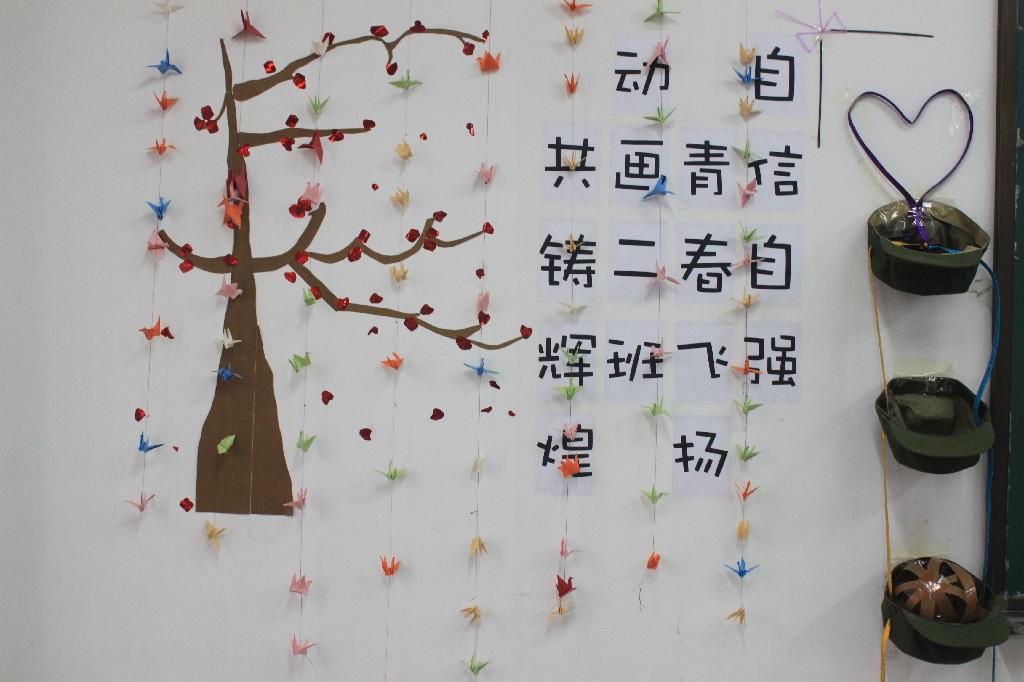 自信自强
青春飞扬
动画二班
共铸辉煌